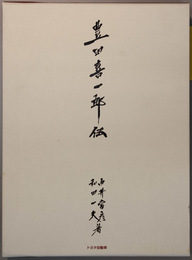 豊田喜一郎伝
由井常彦
和田一夫 著
トヨタ自動車